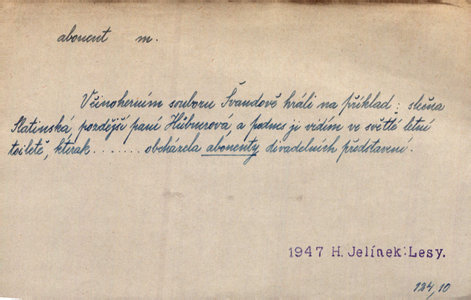 abonent m.
V činoherním souboru Švandově hráli na příklad: slečna
Slatinská, pozdější paní Hübnerová, a podnes ji vidím ve světlé letní
toiletě, kterak........ obcházela abonenty divadelních představení.
1947 H. Jelínek: Lesy.
124,10